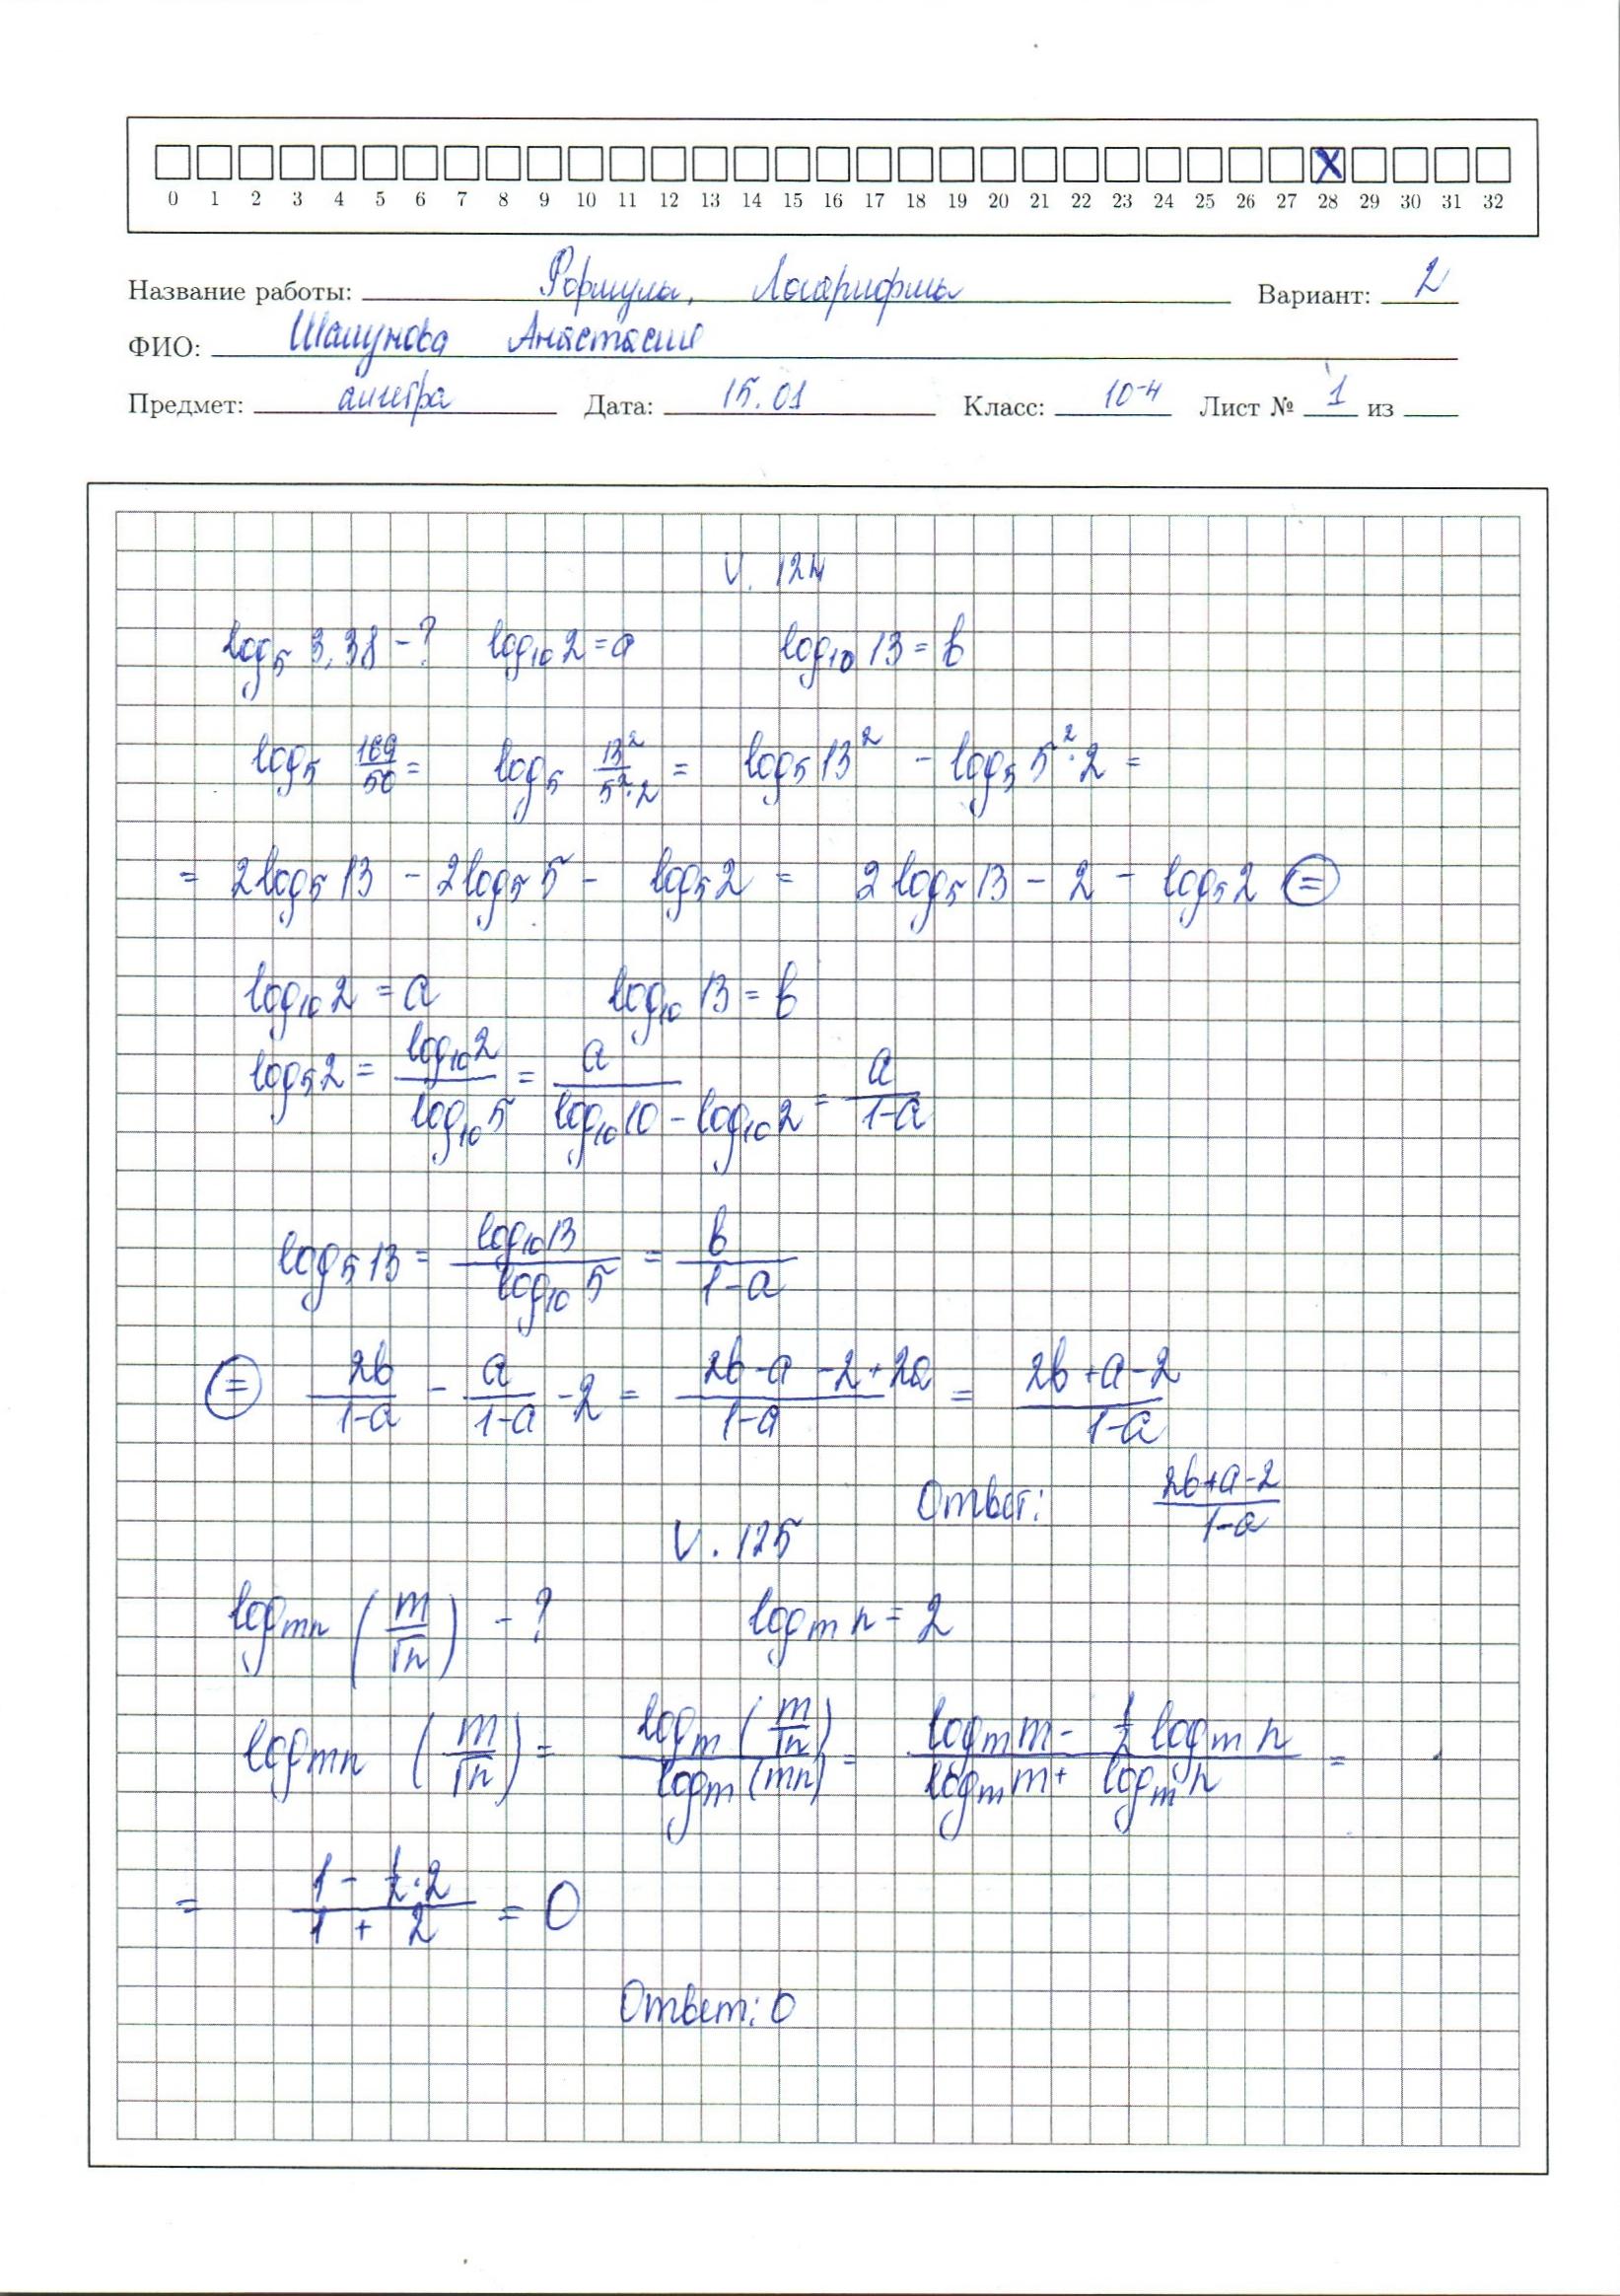 0 1 2 3 4 5 6 7 8 9 10 11 12 13 14 15 16 17 18 19 20 21 22 23 24 25 26 27 28 29 30 31 32
Название работы: Формулы, Логарифмы Вариант: 2
ФИО: Шашунова Анастасия
Предмет: алгебра Дата: 15.01 Класс: 10-4 Лист № 1 из
V. 124
log₅ 3,38 - ? log₁₀ 2 = a log₁₀ 13 = b
log₅ 169/50 = log₅ 13²/(5²·2) = log₅ 13² - log₅ 5²·2 =
= 2log₅ 13 - 2log₅ 5 - log₅ 2 = 2 log₅ 13 - 2 - log₅ 2 ⊜
log₁₀ 2 = a log₁₀ 13 = b
log₅ 2 = log₁₀ 2/log₁₀ 5 = a/(log₁₀ 10 - log₁₀ 2) = a/(1-a)
log₅ 13 = log₁₀ 13/log₁₀ 5 = b/(1-a)
⊜ 2b/(1-a) - a/(1-a) - 2 = (2b-a-2+2a)/(1-a) = (2b+a-2)/(1-a)
Ответ: (2b+a-2)/(1-a)
V. 125
log_mn (m/√n) - ? log_m n = 2
log_mn (m/√n) = log_m (m/√n)/log_m (mn) = (log_m m - ½ log_m n)/(log_m m + log_m n) =
= (1 - ½·2)/(1 + 2) = 0
Ответ: 0